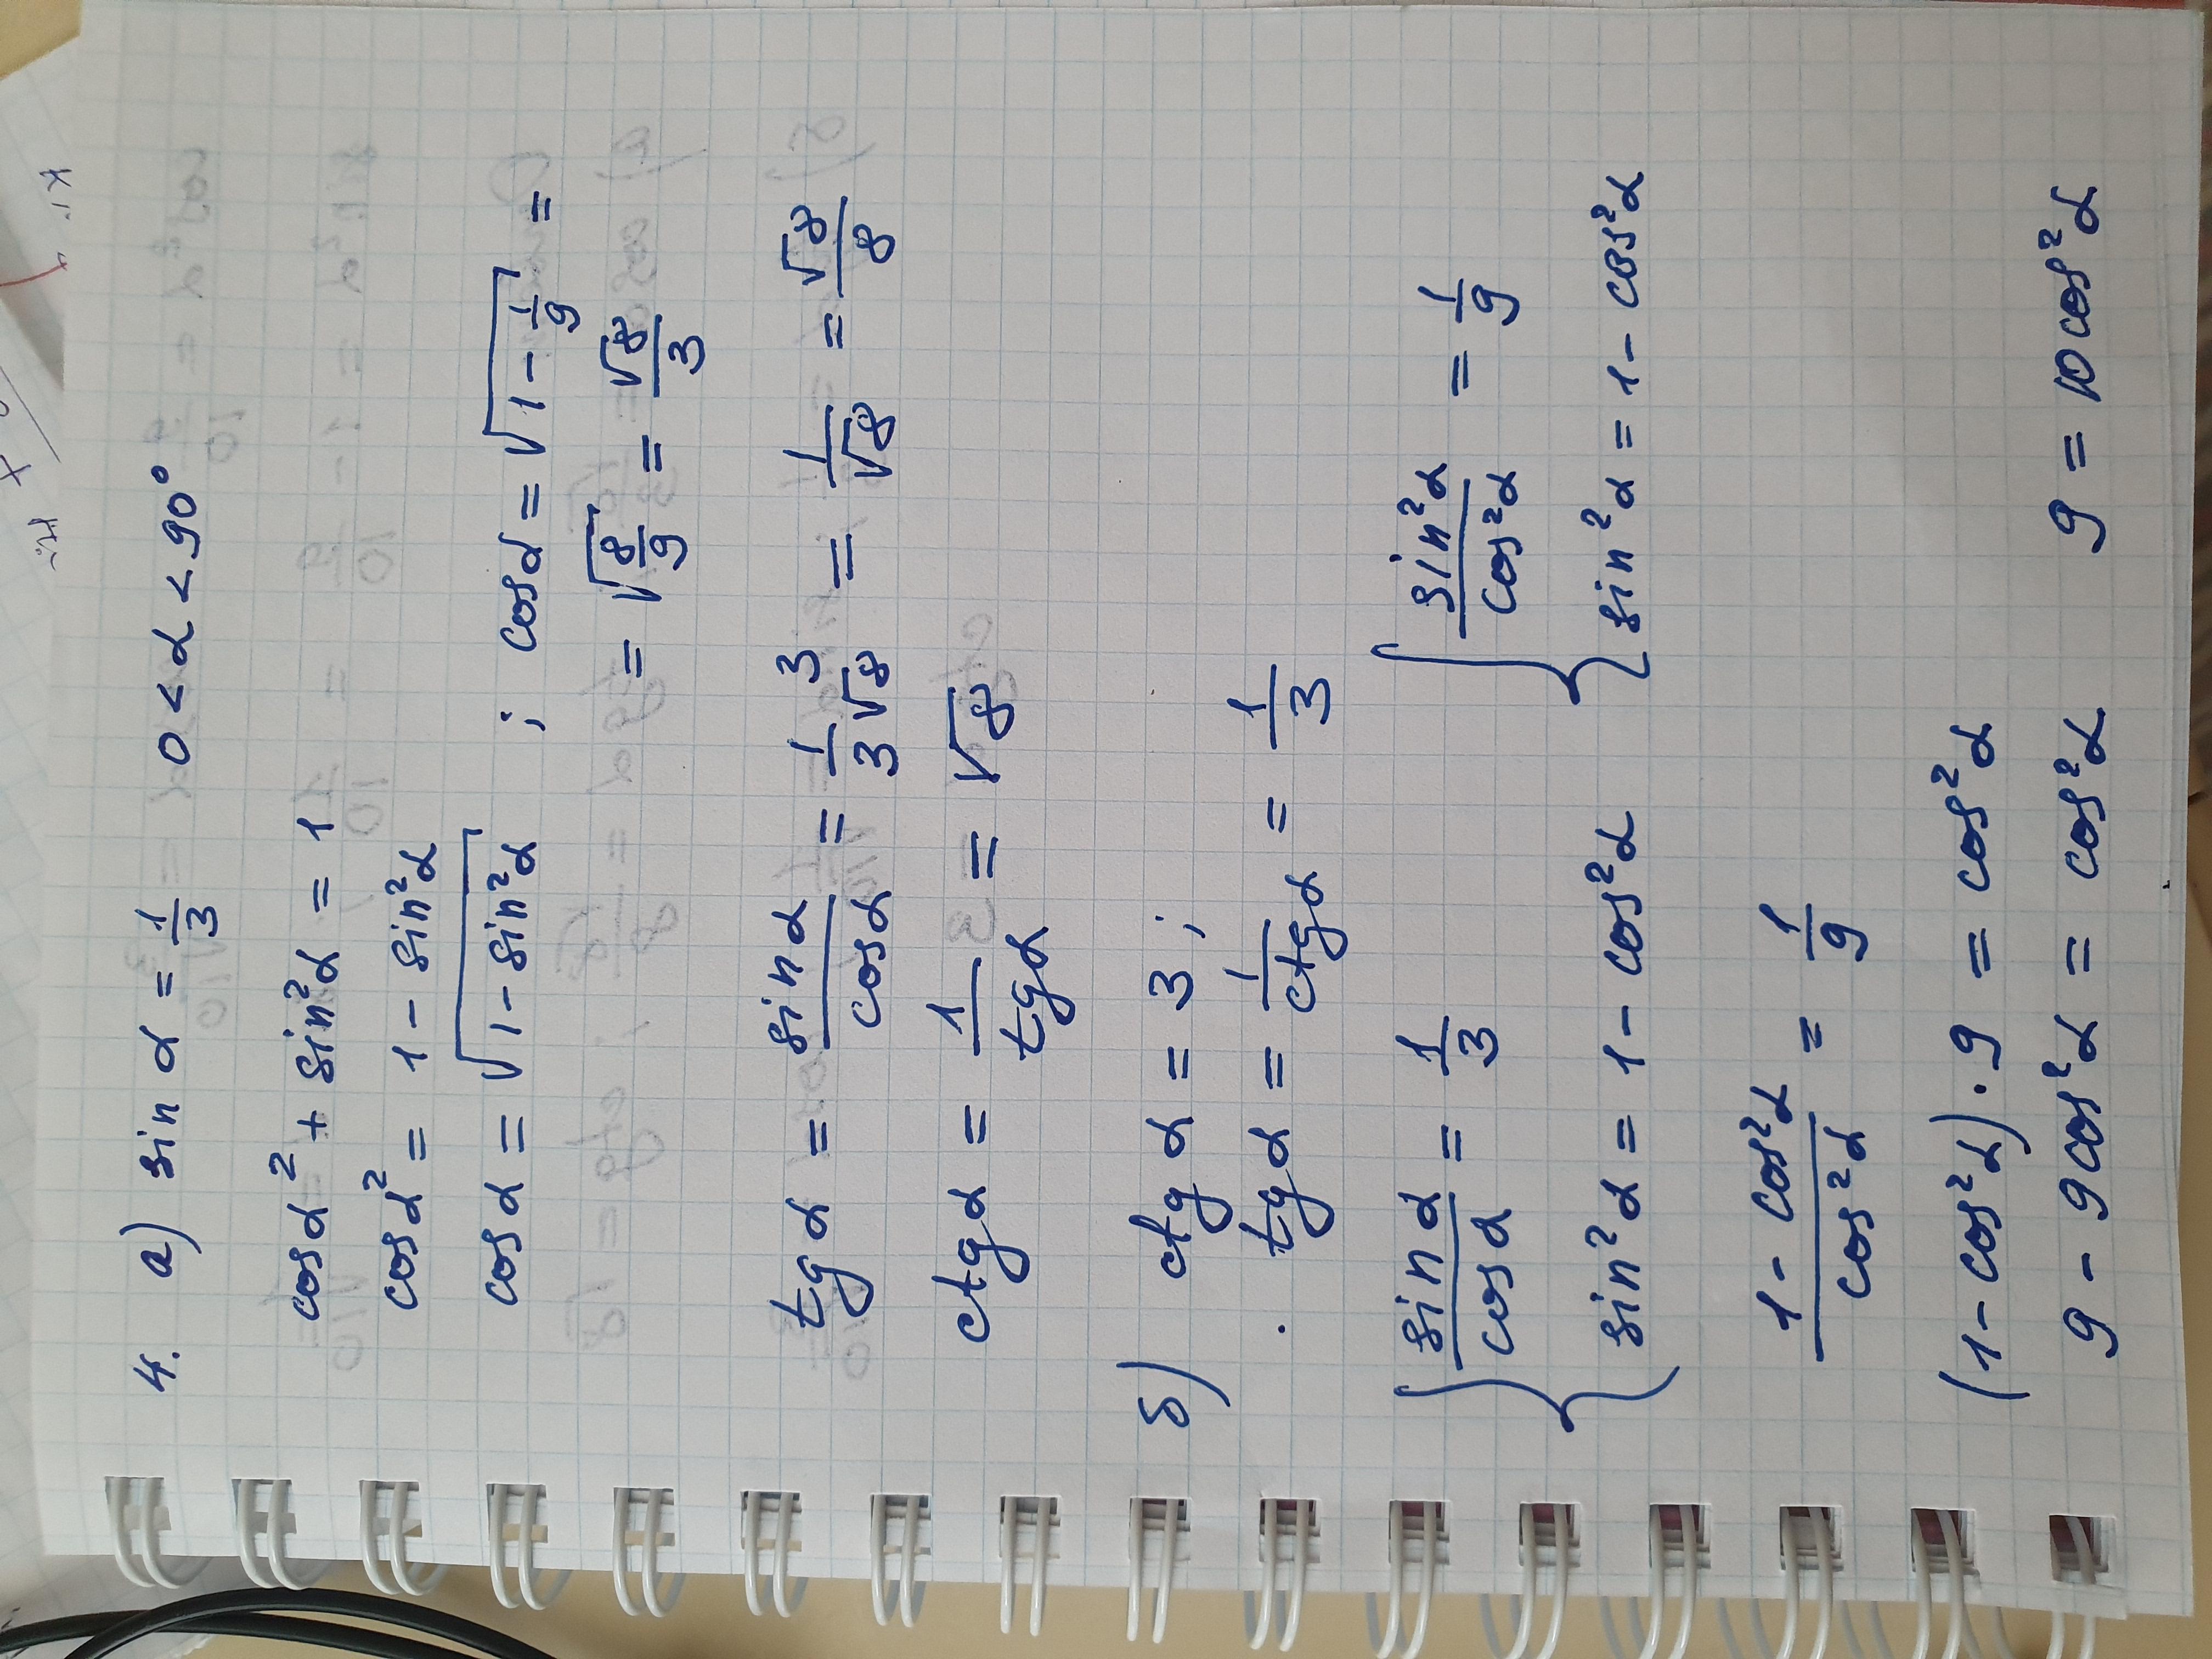 4. а) sin α = 1/3 0 < α < 90°
cosα² + sin²α = 1
cosα² = 1 - sin²α
cosα = √(1 - sin²α) ; cosα = √(1 - 1/9) =
= √(8/9) = √8/3
tgα = sinα/cosα = 1/3 3/√8 = 1/√8 = √8/8
ctgα = 1/tgα = √8
б) ctg α = 3 ;
. tgα = 1/ctgα = 1/3
{ sinα/cosα = 1/3 { sin²α/cos²α = 1/9
sin²α = 1 - cos²α sin²α = 1 - cos²α
(1 - cos²α)/cos²α = 1/9
(1 - cos²α) · 9 = cos²α
9 - 9cos²α = cos²α 9 = 10cos²α